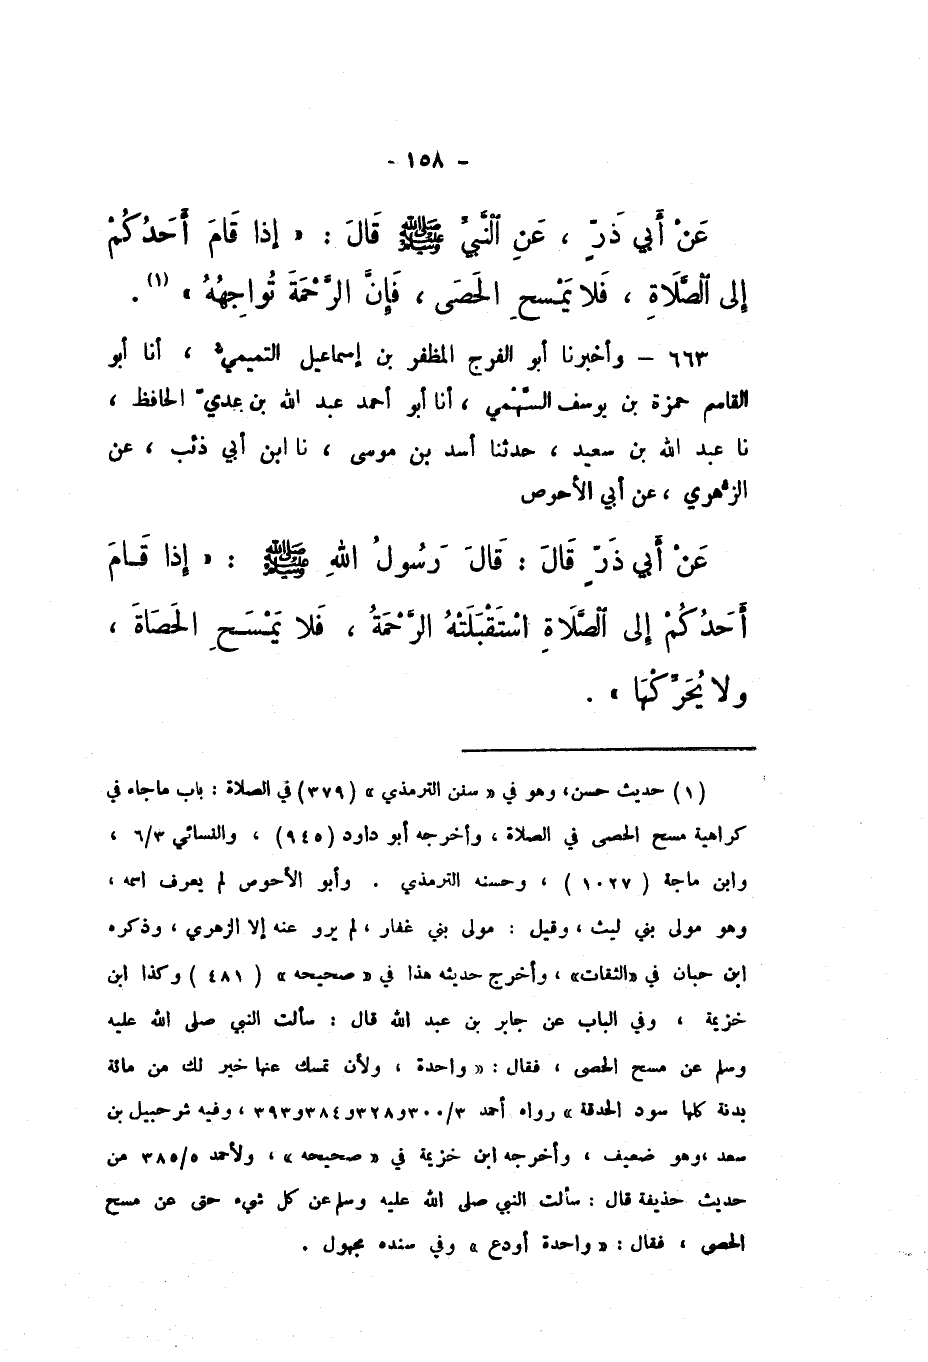 - ١٥٨ -
عَنْ أَبي ذَرٍّ ، عَنِ ٱلنَّبيِّ ﷺ قَالَ : « إذا قَامَ أَحَدُكُمْ
إلى ٱلصَّلَاةِ ، فَلا يَمْسحِ الحَصَى ، فَإنَّ الرَّحْمَةَ تُواجِهُهُ » (١) .
٦٦٣ – وأخبرنا أبو الفرج المظفر بن إسماعيل التميميُّ ، أنا أبو
القاسم حمزة بن يوسف السَّهْمي ، أنا أبو أحمد عبد الله بن عدي ّ الحافظ ،
نا عبد الله بن سعيد ، حدثنا أسد بن موسى ، نا ابن أبي ذئب ، عن
الزُّهري ، عن أبي الأحوص
عَنْ أَبي ذَرٍّ قَالَ : قَالَ رَسُولُ اللهِ ﷺ : « إذا قَـامَ
أَحَدُكُمْ إلى ٱلصَّلَاةِ اسْتَقْبَلَتْهُ الرَّحْمَةُ ، فَلا يَمْسَـحِ الحَصَاةَ ،
ولا يُحَرِّكْهَا » .
(١) حديث حسن، وهو في « سنن الترمذي » (٣٧٩) في الصلاة : باب ماجاء في
كراهية مسح الحصى في الصلاة ، وأخرجه أبو داود (٩٤٥) ، والنسائي ٦/٣ ،
وابن ماجة ( ١٠٢٧ ) ، وحسنه الترمذي . وأبو الأحوص لم يعرف اسمه ،
وهو مولى بني ليث ، وقيل : مولى بني غفار ، لم يرو عنه إلا الزهري ، وذكره
ابن حبان في «الثقات» ، وأخرج حديثه هذا في « صحيحه » ( ٤٨١ ) وكذا ابن
خزيمة ، وفي الباب عن جابر بن عبد الله قال : سألت النبي صلى الله عليه
وسلم عن مسح الحصى ، فقال : « واحدة ، ولأن تمسك عنها خير لك من مائة
بدنة كلها سود الحدقة » رواه أحمد ٣٠٠/٣ و٣٢٨ و٣٨٤ و٣٩٣ ، وفيه شرحبيل بن
سعد ،وهو ضعيف ، وأخرجه ابن خزيمة في « صحيحه » ، ولأحمد ٣٨٥/٥ من
حديث حذيفة قال : سألت النبي صلى الله عليه وسلم عن كل شيء حتى عن مسح
الحصى ، فقال : « واحدة أودع » وفي سنده مجهول .